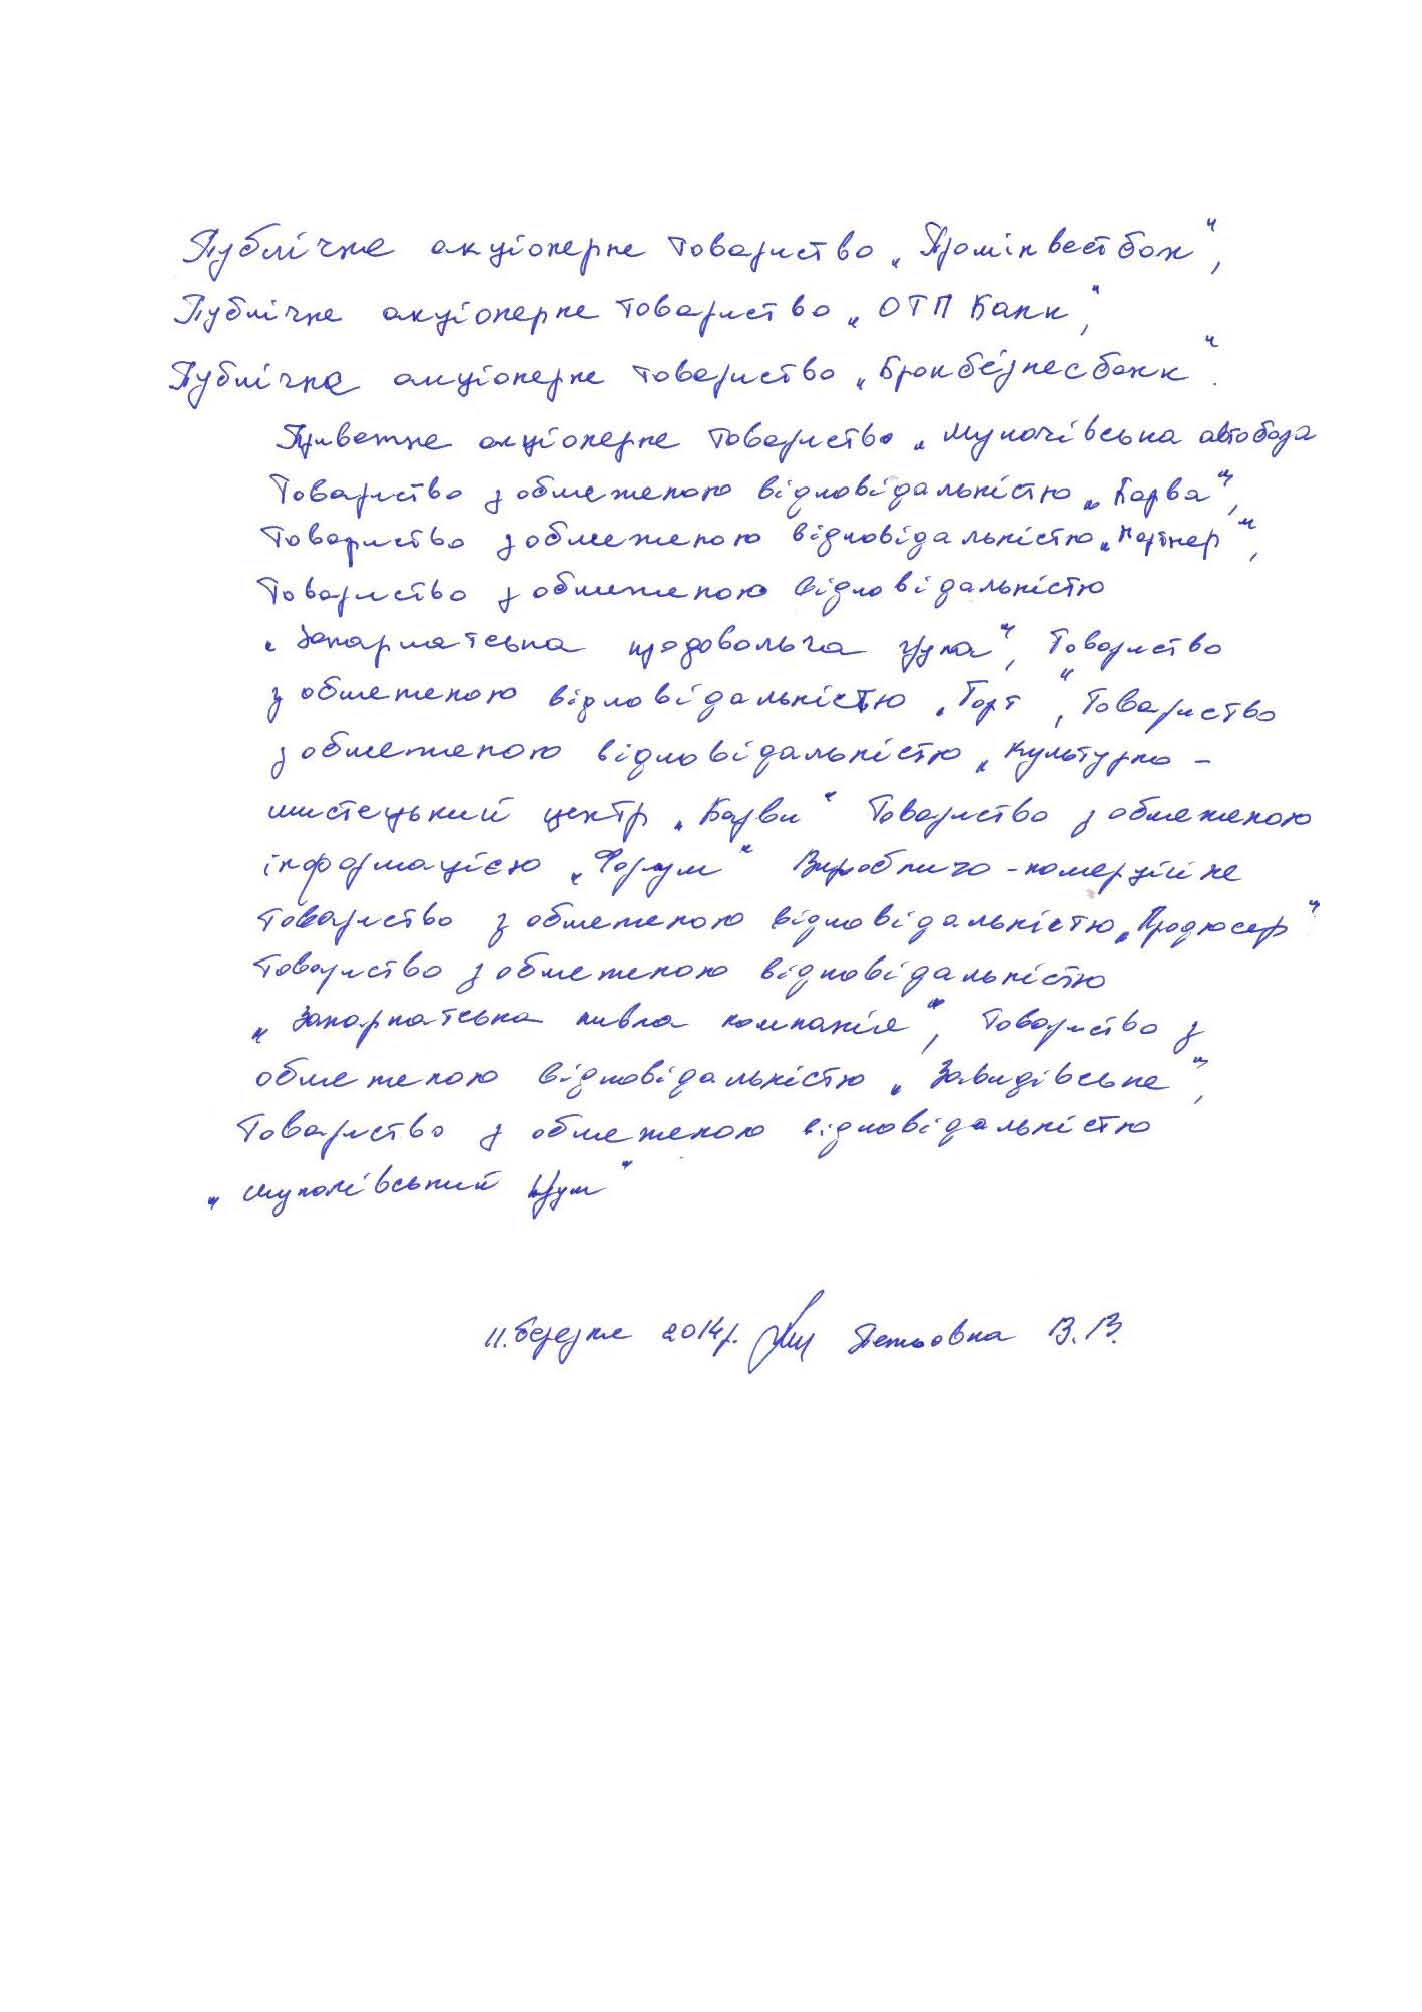 Публічне акціонерне товариство „Промінвестбанк",
Публічне акціонерне товариство „ОТП Банк",
Публічне акціонерне товариство „Брокбізнесбанк".
Приватне акціонерне товариство „Мукачівська автобаза
Товариство з обмеженою відповідальністю „Барва",
Товариство з обмеженою відповідальністю „Партнер",
Товариство з обмеженою відповідальністю
„Закарпатська продовольча група", Товариство
з обмеженою відповідальністю „Торг", Товариство
з обмеженою відповідальністю „Культурно-
мистецький центр „Барви" Товариство з обмеженою
інформацією „Форум" Виробничо-комерційне
товариство з обмеженою відповідальністю „Продюсер"
Товариство з обмеженою відповідальністю
„Закарпатська пивна компанія", Товариство з
обмеженою відповідальністю „Завидівське",
Товариство з обмеженою відповідальністю
„Мукачівський
11 березня 2014р. В.В.